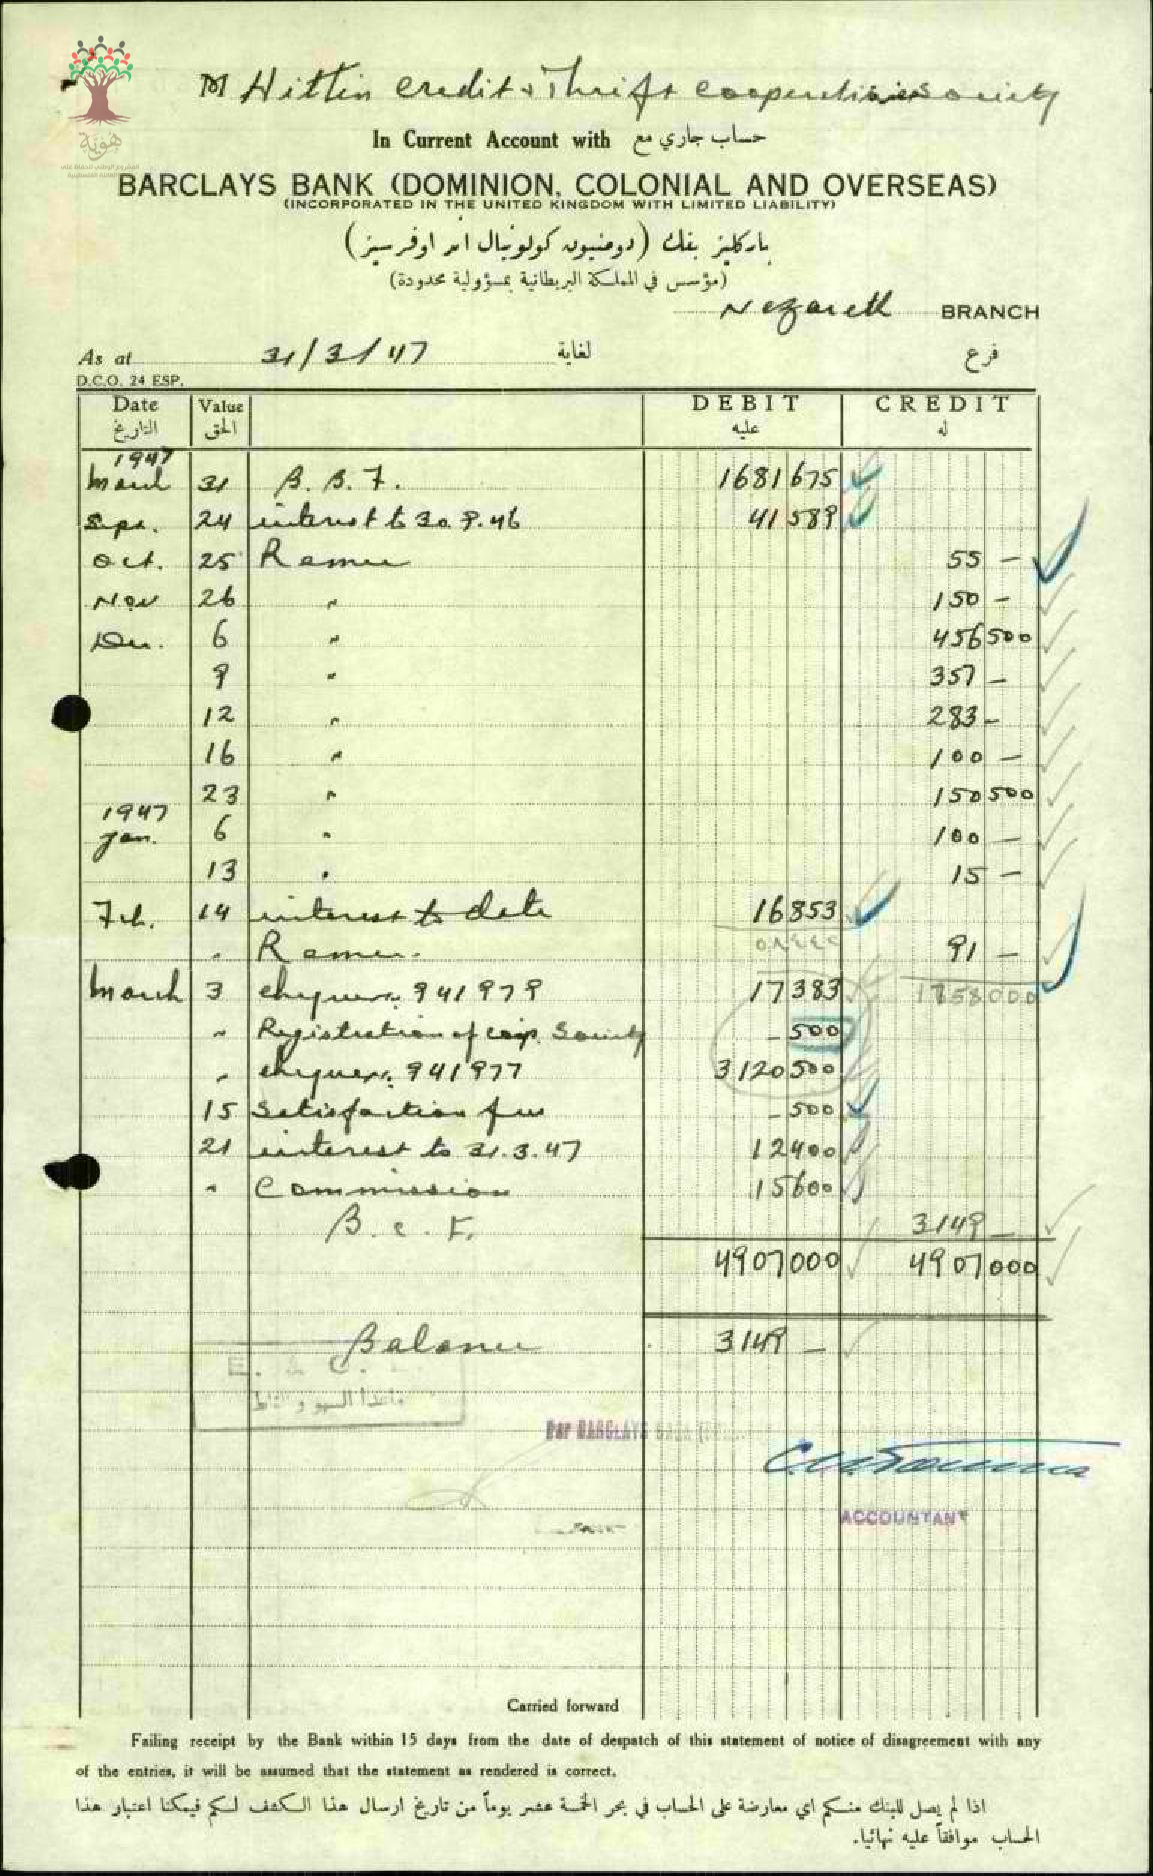 هوية
M Hittin Credit & Thrift Cooperative Society
In Current Account with حساب جاري مع
BARCLAYS BANK (DOMINION, COLONIAL AND OVERSEAS)
(INCORPORATED IN THE UNITED KINGDOM WITH LIMITED LIABILITY)
باركليز بنك (دومنيون كولونيال اند اوفرسيز)
(مؤسس في المملكة البريطانية بمسؤولية محدودة)
Nazareth BRANCH
As at 31/3/47 لغاية فرع
D.C.O. 24 ESP.
Date Value DEBIT CREDIT
التاريخ الحق عليه له
1947
March 31 B. B. F. 1681 675
Sept. 24 interest to 30.9.46 41 589
Oct. 25 Remee 55 —
Nov 26 " 150 —
Dec. 6 " 456 500
9 " 357 —
12 " 283 —
16 " 100 —
23 " 150 500
1947
Jan. 6 " 100 —
13 " 15 —
Feb. 14 interest to date 16 853
" Remee. 91 —
1758000
March 3 cheque no. 941979 17 383
" Registration of coop. Society — 500
" cheque no. 941977 3120 500
15 Satisfaction fee — 500
21 interest to 31.3.47 12 400
" Commission 15 600
B. C. F. 3149 —
4907 000 4907 000
Balance 3149 —
E. & O. E.
ماعدا السهو و الغلط
Per BARCLAYS BANK
ACCOUNTANT
Carried forward
Failing receipt by the Bank within 15 days from the date of despatch of this statement of notice of disagreement with any
of the entries, it will be assumed that the statement as rendered is correct.
اذا لم يصل للبنك منكم اي معارضة على الحساب في بحر الخمسة عشر يوماً من تاريخ ارسال هذا الكشف لكم فيمكنا اعتبار هذا
الحساب موافقاً عليه نهائيا.